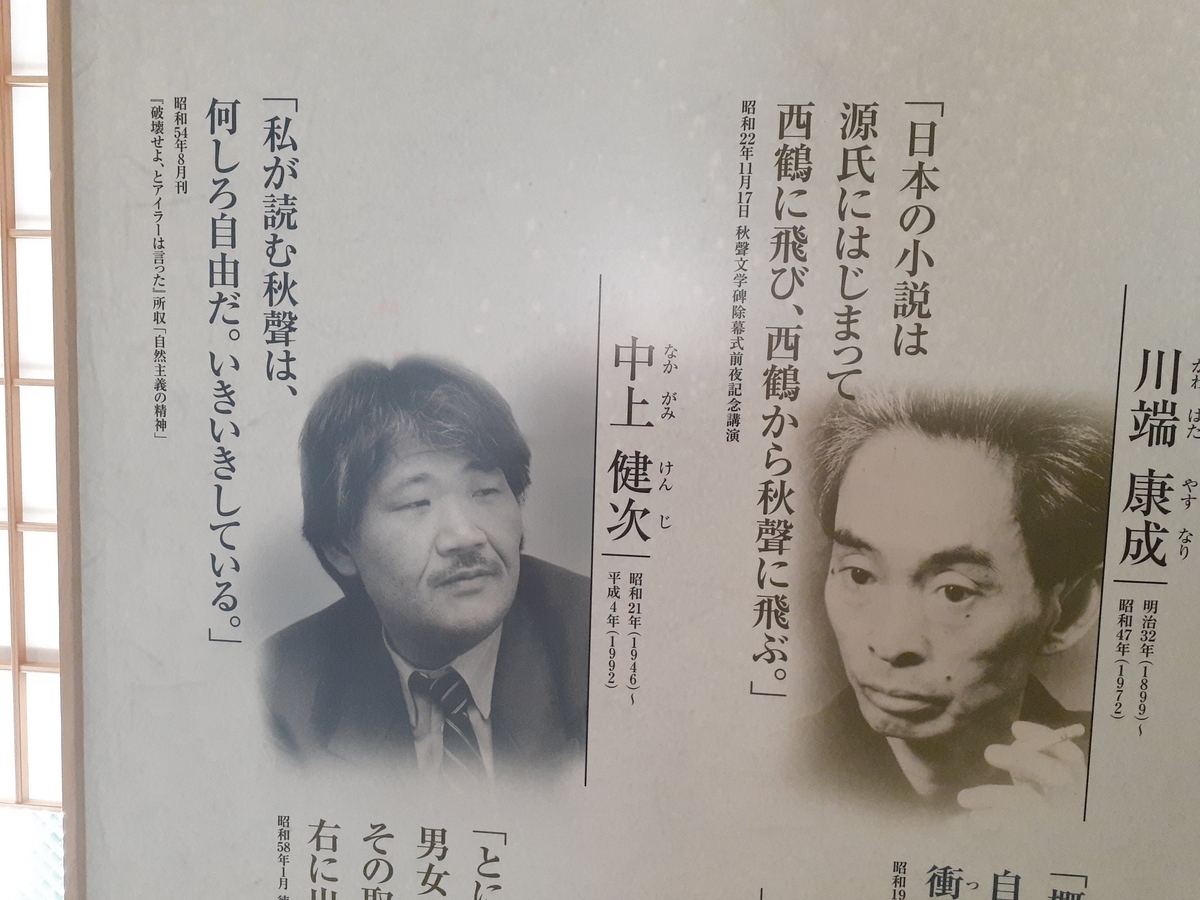 川端 康成
かわ ばた やす なり
明治32年(1899)~
昭和47年(1972)
「日本の小説は
源氏にはじまって
西鶴に飛び、西鶴から秋聲に飛ぶ。」
昭和22年11月17日 秋聲文学碑除幕式前夜記念講演
中上 健次
なか がみ けん じ
昭和21年(1946)~
平成4年(1992)
「私が読む秋聲は、
何しろ自由だ。いきいきしている。」
昭和54年8月刊
『破壊せよ、とアイラーは言った』所収「自然主義の精神」
自
衝
つ
昭和19
「とに
男女
その取
右に出
昭和58年1月